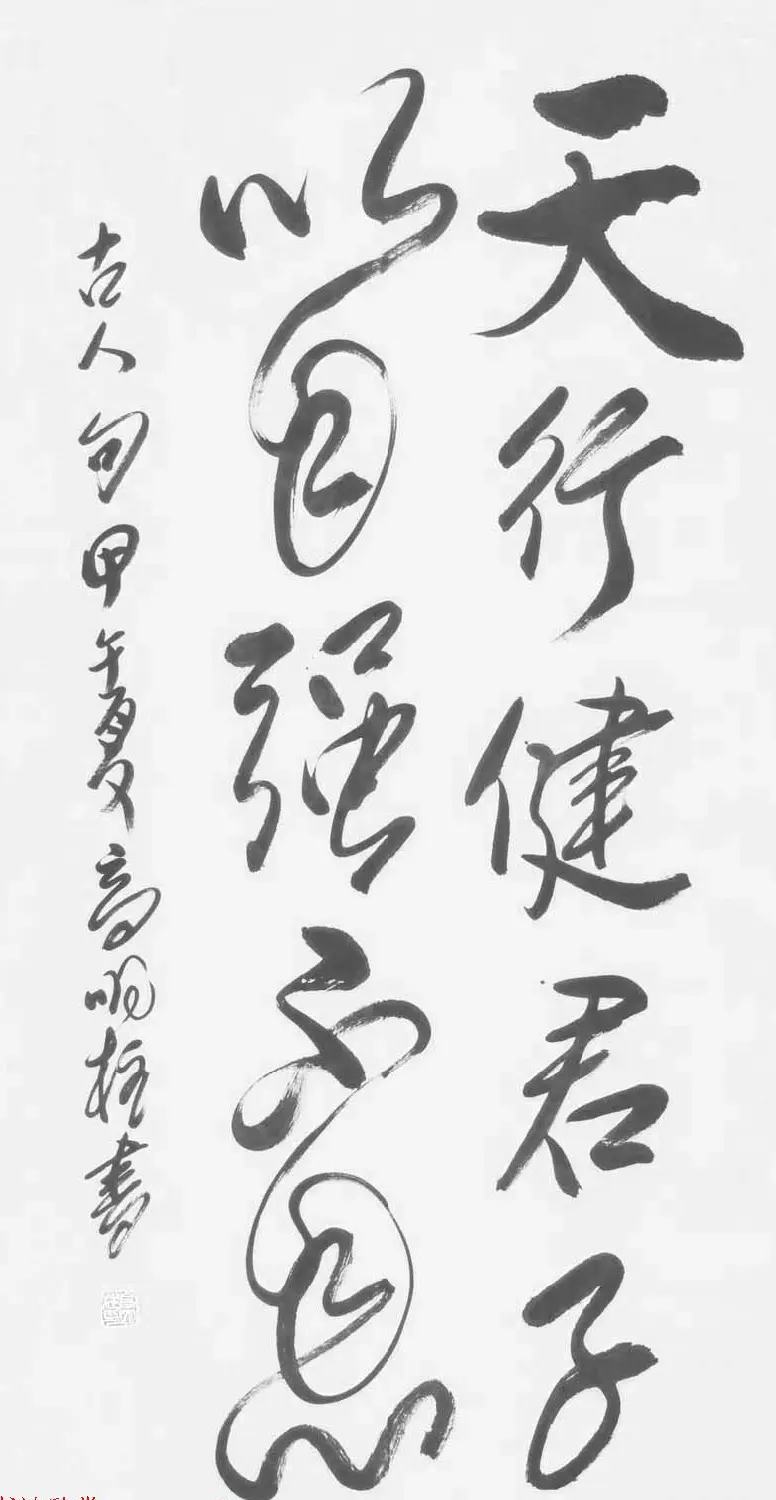 天行健君子
以自强不息
古人句甲午夏高明柱書